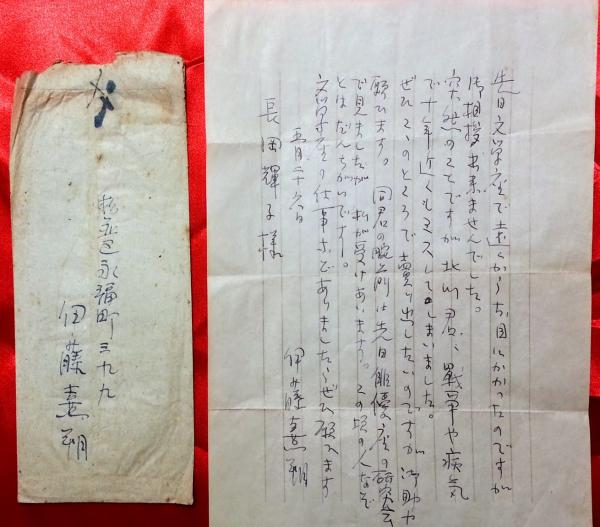 先日文学座で遠くからお目にかかったのですが
御相談出来ませんでした。
突然のことですが北川君、戦争や病気
で十年近くもミスしてしまいました。
ぜひこゝのところで売り出したいのですが御助力
願ひます。 同君の腕前は先日俳優座の研究会
で見ましたが私が受けあいます。この頃の人など
とはだんちがいです。
文学座の仕事等でありましたらぜひ願ひます
五月二十六日
伊藤熹朔
長岡輝子様
杉並区永福町三九九
伊藤熹朔